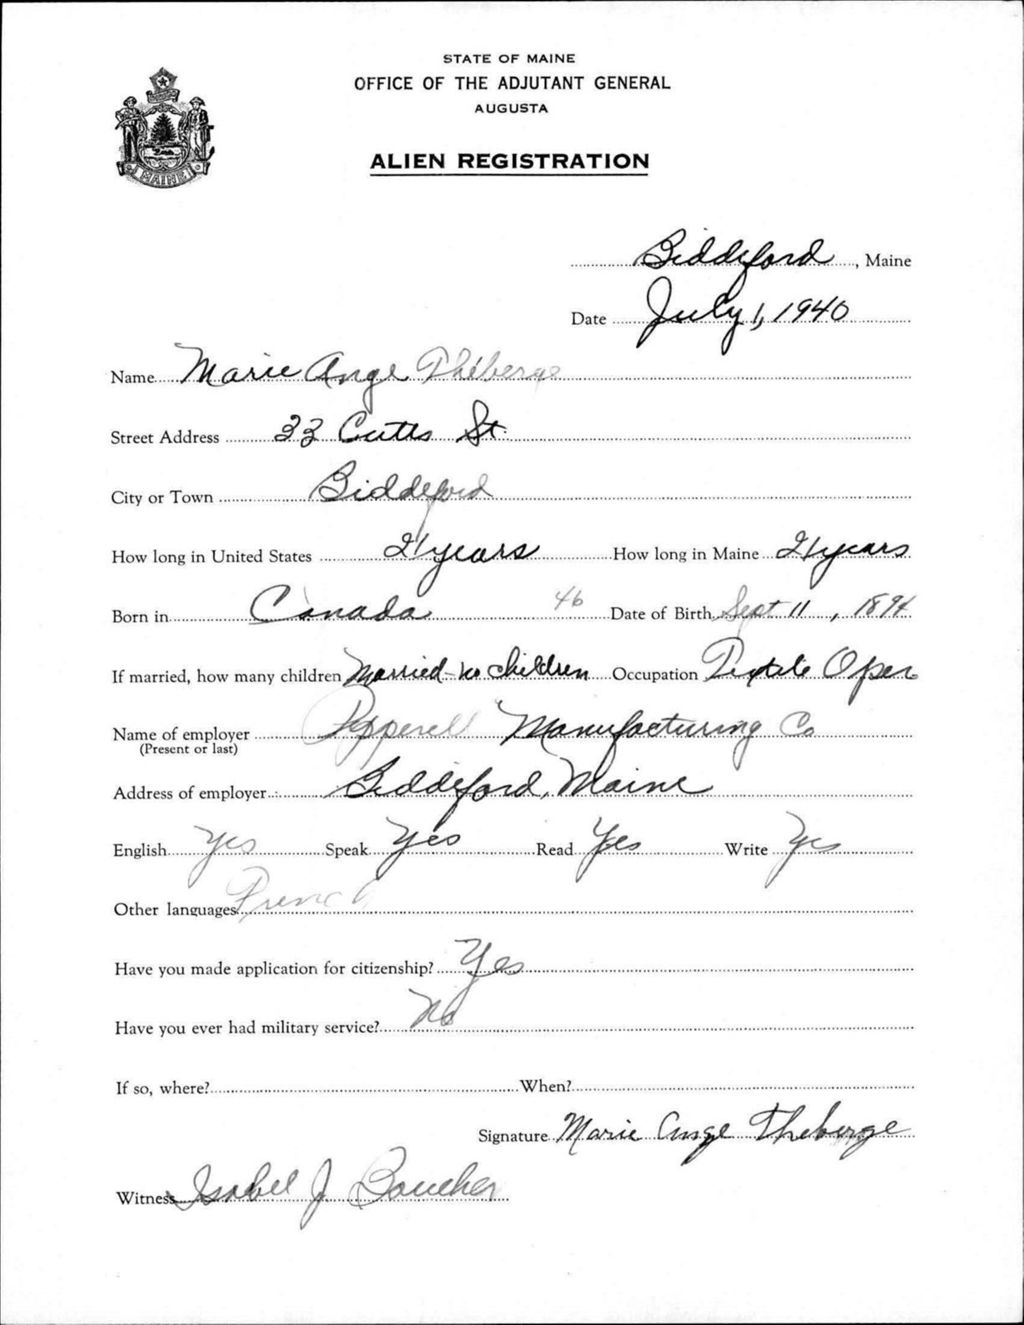 STATE OF MAINE
OFFICE OF THE ADJUTANT GENERAL
AUGUSTA
ALIEN REGISTRATION
MAINE
Biddeford, Maine
Date July 1, 1940
Name Marie Ange Théberge
Street Address 33 Cutts St.
City or Town Biddeford
How long in United States 21 years How long in Maine 21 years
Born in Canada 46 Date of Birth Sept 11, 1894
If married, how many children Married - no children Occupation Textile Oper
Name of employer Pepperell Manufacturing Co
(Present or last)
Address of employer Biddeford, Maine
English Yes Speak Yes Read Yes Write Yes
Other languages French
Have you made application for citizenship? Yes
Have you ever had military service? No
If so, where? When?
Signature Marie Ange Theberge
Witness Isabel J Boucher